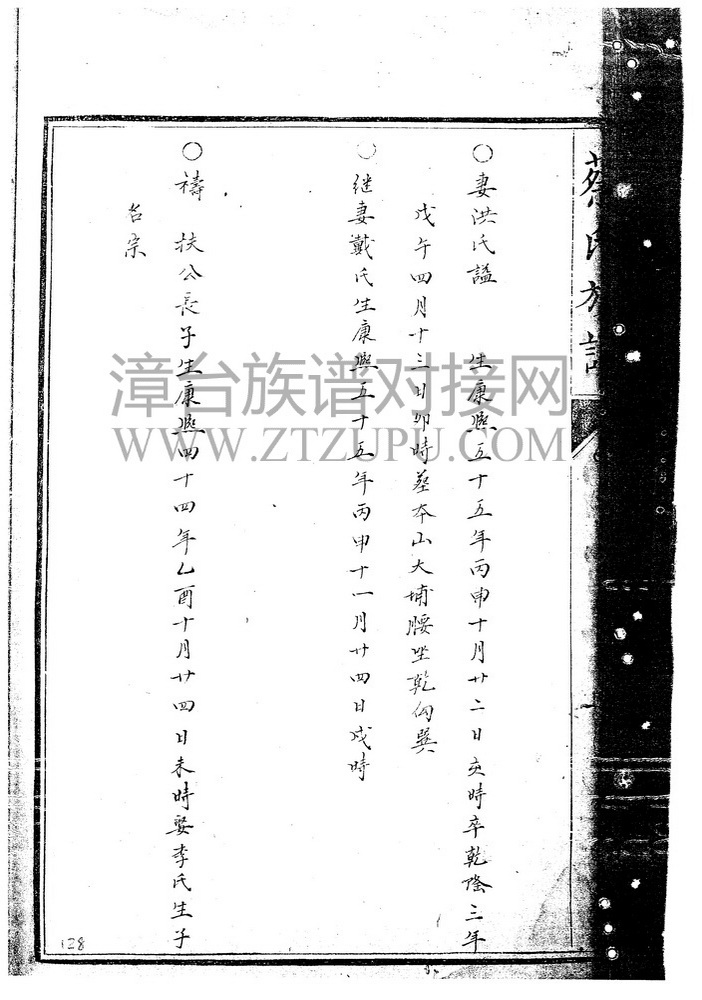 蔡氏族譜
○妻洪氏謚 生康熙五十五年丙申十月廿二日亥時卒乾隆三年
戊午四月十三日卯時葬本山大埔腰坐乾向巽
○继妻戴氏生康熙五十五年丙申十一月廿四日戍時
○禱 扶公長子生康熙四十四年乙酉十月廿四日未時娶李氏生子
名宗
128
漳台族谱对接网
WWW.ZTZUPU.COM